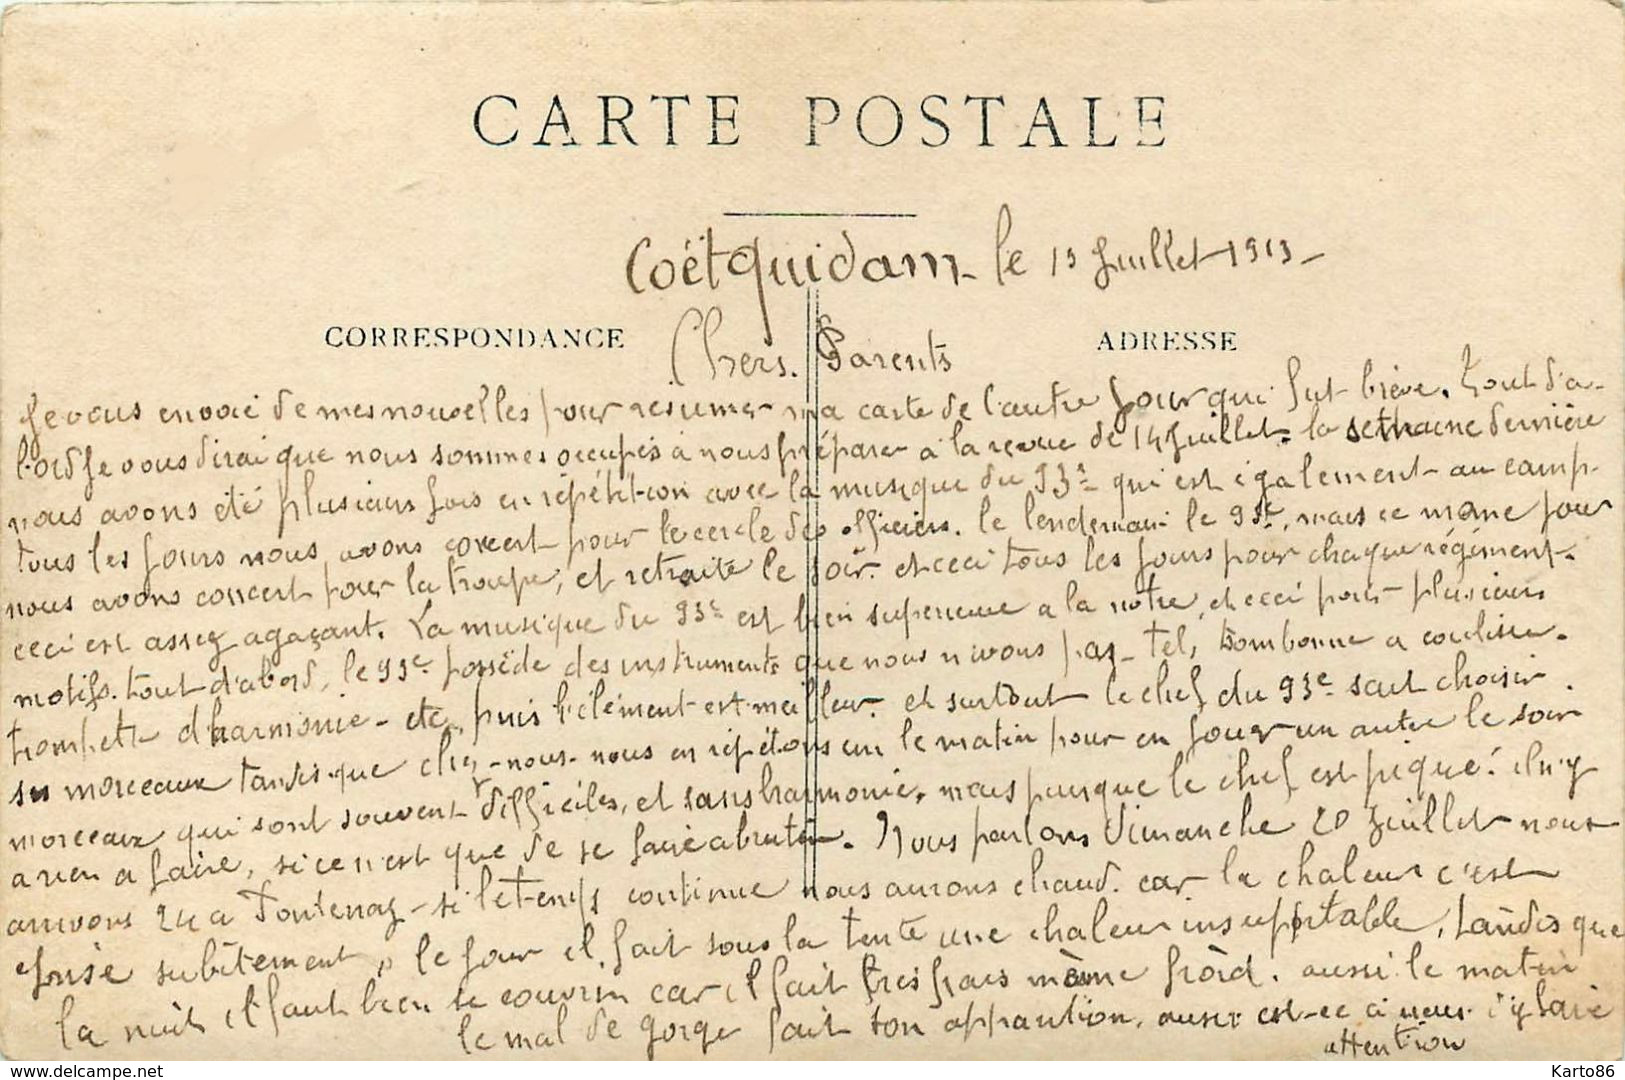 CARTE POSTALE
Coëtquidam - le 13 Juillet 1913 -
CORRESPONDANCE
ADRESSE
Chers. Parents
Je vous envoie de mes nouvelles pour résumer ma carte de l'autre jour qui fut brève. Tout d'a-
bord je vous dirai que nous sommes occupés à nous préparer à la revue de 14 Juillet. la semaine dernière
nous avons été plusieurs fois en répétition avec la musique du 93e qui est également au camp.
tous les jours nous avons concert pour le cercle des officiers. le lendemain le 93e, mais ce même jour
nous avons concert pour la troupe, et retraite le soir. et ceci tous les jours pour chaque régiment.
ceci est assez agaçant. La musique du 93e est bien superieure a la notre, et ceci pour plusieurs
motifs. tout d'abord, le 93e possède des instruments que nous n'avons pas - tel, trombonne a coulisse.
trompette d'harmonie - etc, puis l'élément est meilleur. et surtout le chef du 93e sait choisir
ses morceaux tandis que chez - nous - nous en répétons un le matin pour en jouer un autre le soir.
morceaux qui sont souvent difficiles, et sans harmonie. mais puisque le chef est piqué! il n'y
a rien a faire, si ce n'est que de se faire abrutir. Nous partons Dimanche 20 Juillet nous
arrivons 24 a Fontenay - si le temps continue nous aurons chaud. car la chaleur c'est
subitement, le jour il fait sous la tente une chaleur insupportable, tandis que
la nuit il faut bien se couvrir car il fait très frais même froid. aussi le matin
le mal de gorge fait son apparition. aussi est-ce à nous d'y faire
attention
delcampe.net
Karto86